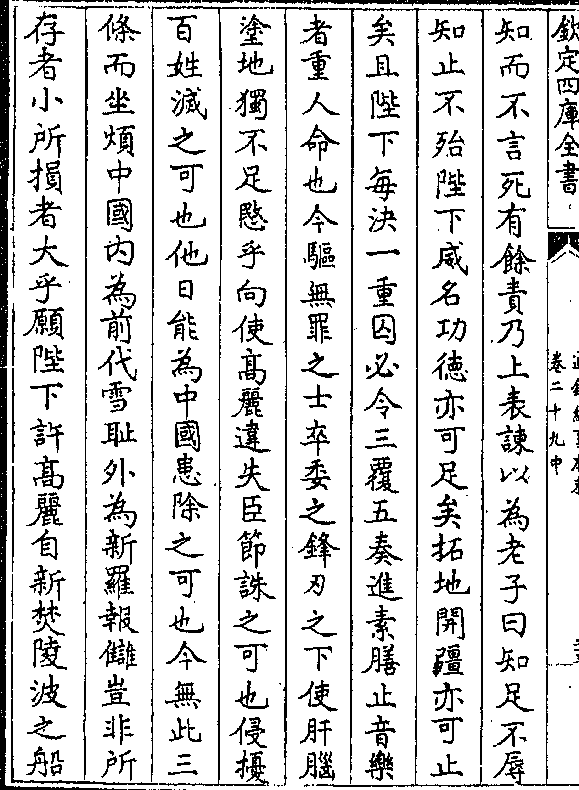 欽定四庫全書
卷二十九中
知而不言死有餘責乃上表諫以為老子曰知足不辱
知止不殆陛下威名功德亦可足矣拓地開疆亦可止
矣且陛下每決一重囚必令三覆五奏進素膳止音樂
者重人命也今驅無罪之士卒委之鋒刃之下使肝腦
塗地獨不足愍乎向使高麗違失臣節誅之可也侵擾
百姓滅之可也他日能為中國患除之可也今無此三
條而坐煩中國内為前代雪恥外為新羅報讎豈非所
存者小所損者大乎願陛下許高麗自新焚陵波之船